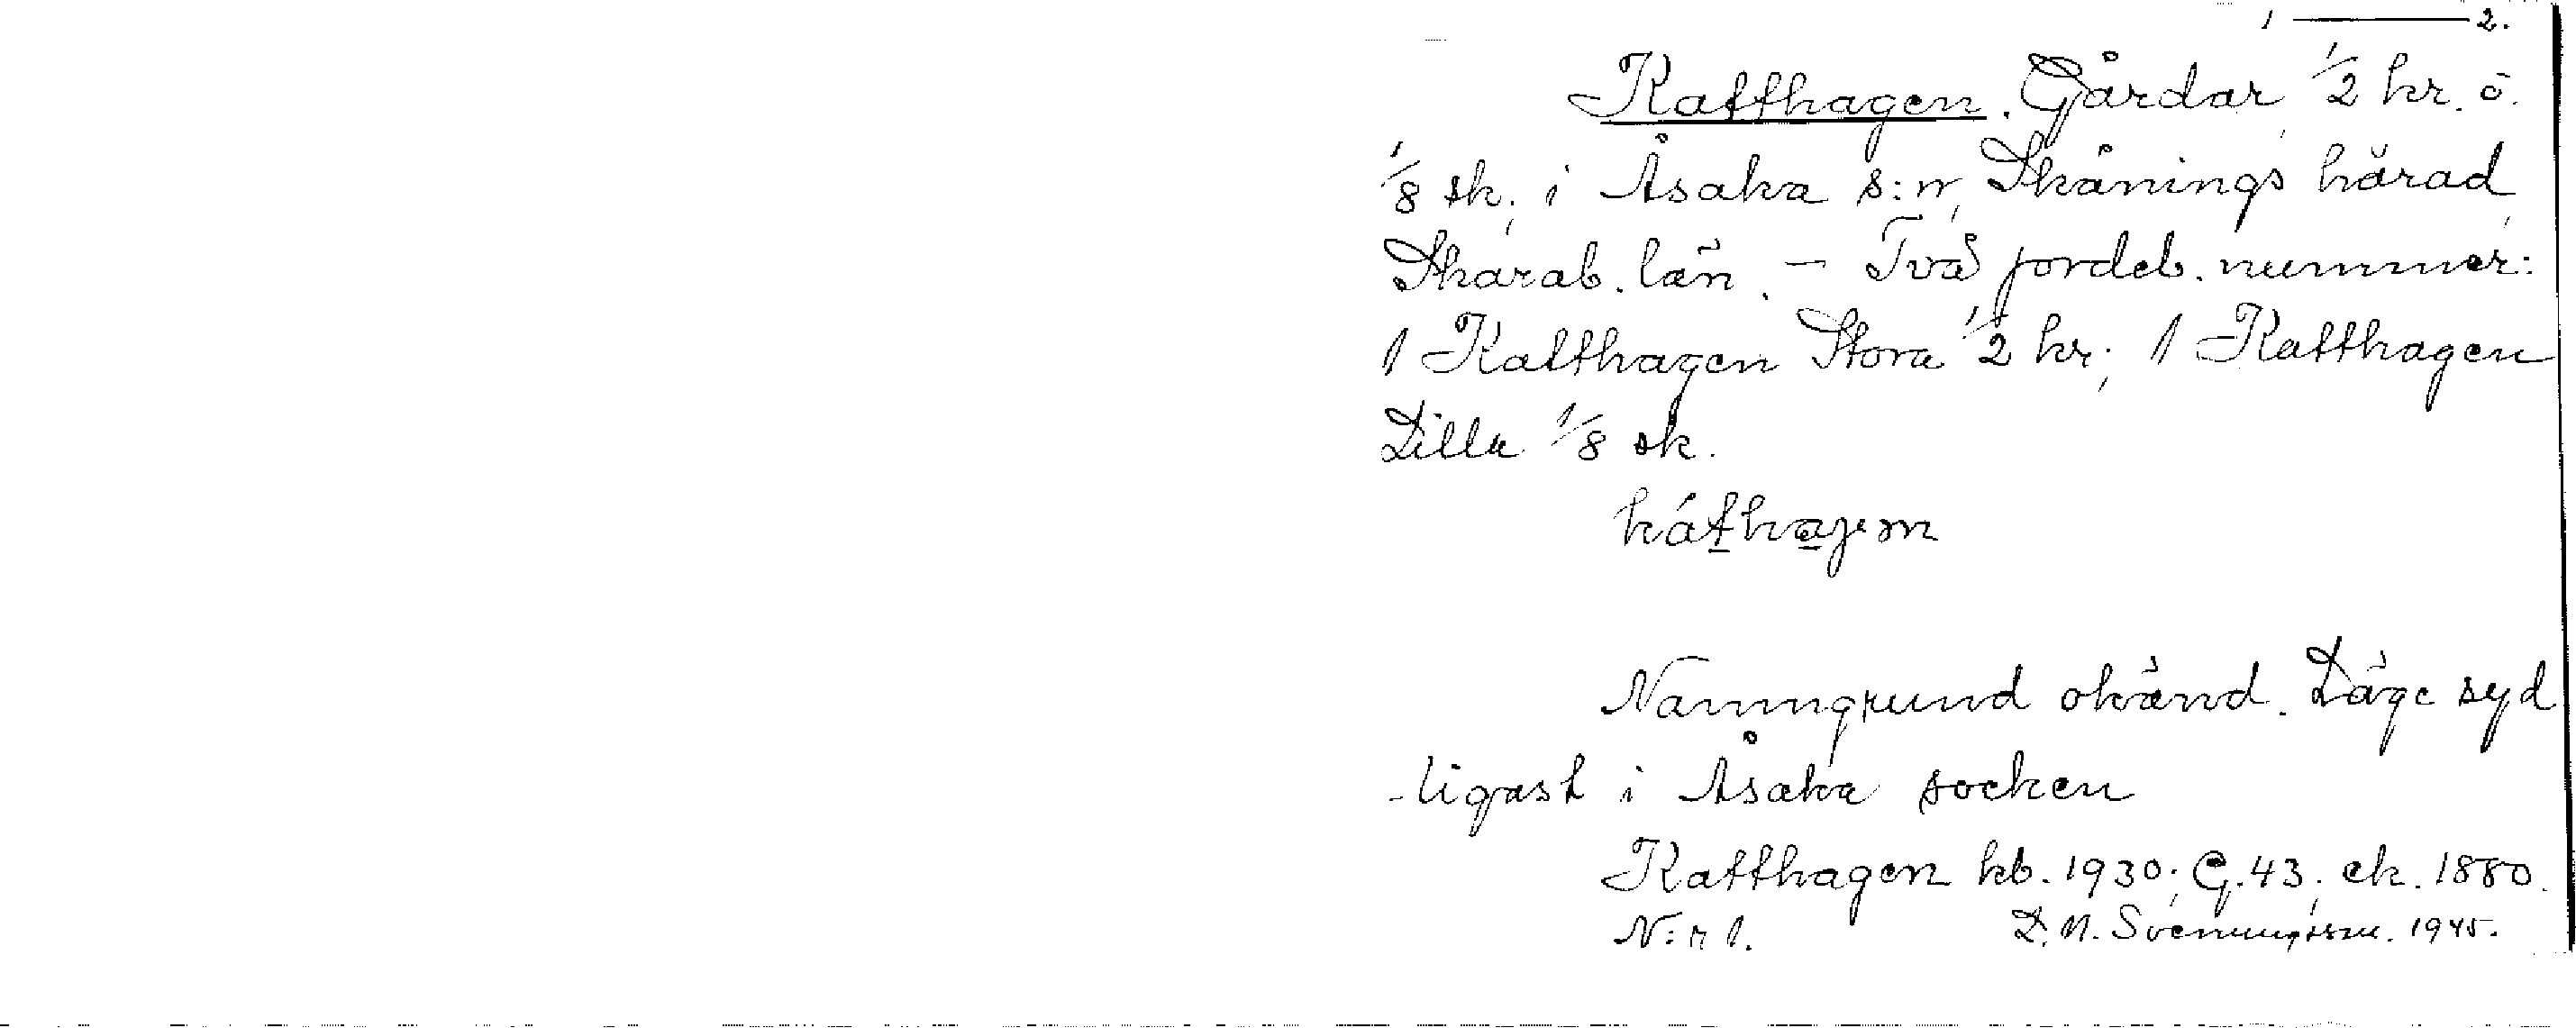 1 — 2.
Katthagen. Gårdar 1/2 kr. o.
1/8 sk. i Åsaka s:n, Skånings härad,
Skarab. län. – Två jordeb. nummer:
1 Katthagen Stora 1/2 kr; 1 Katthagen
Lilla 1/8 sk.
káthajen
Namngrund okänd. Läge syd
-ligast i Åsaka socken
Katthagen kb. 1930; G. 43; ek. 1880.
N:r 1. D. N. Svenungsson. 1945.